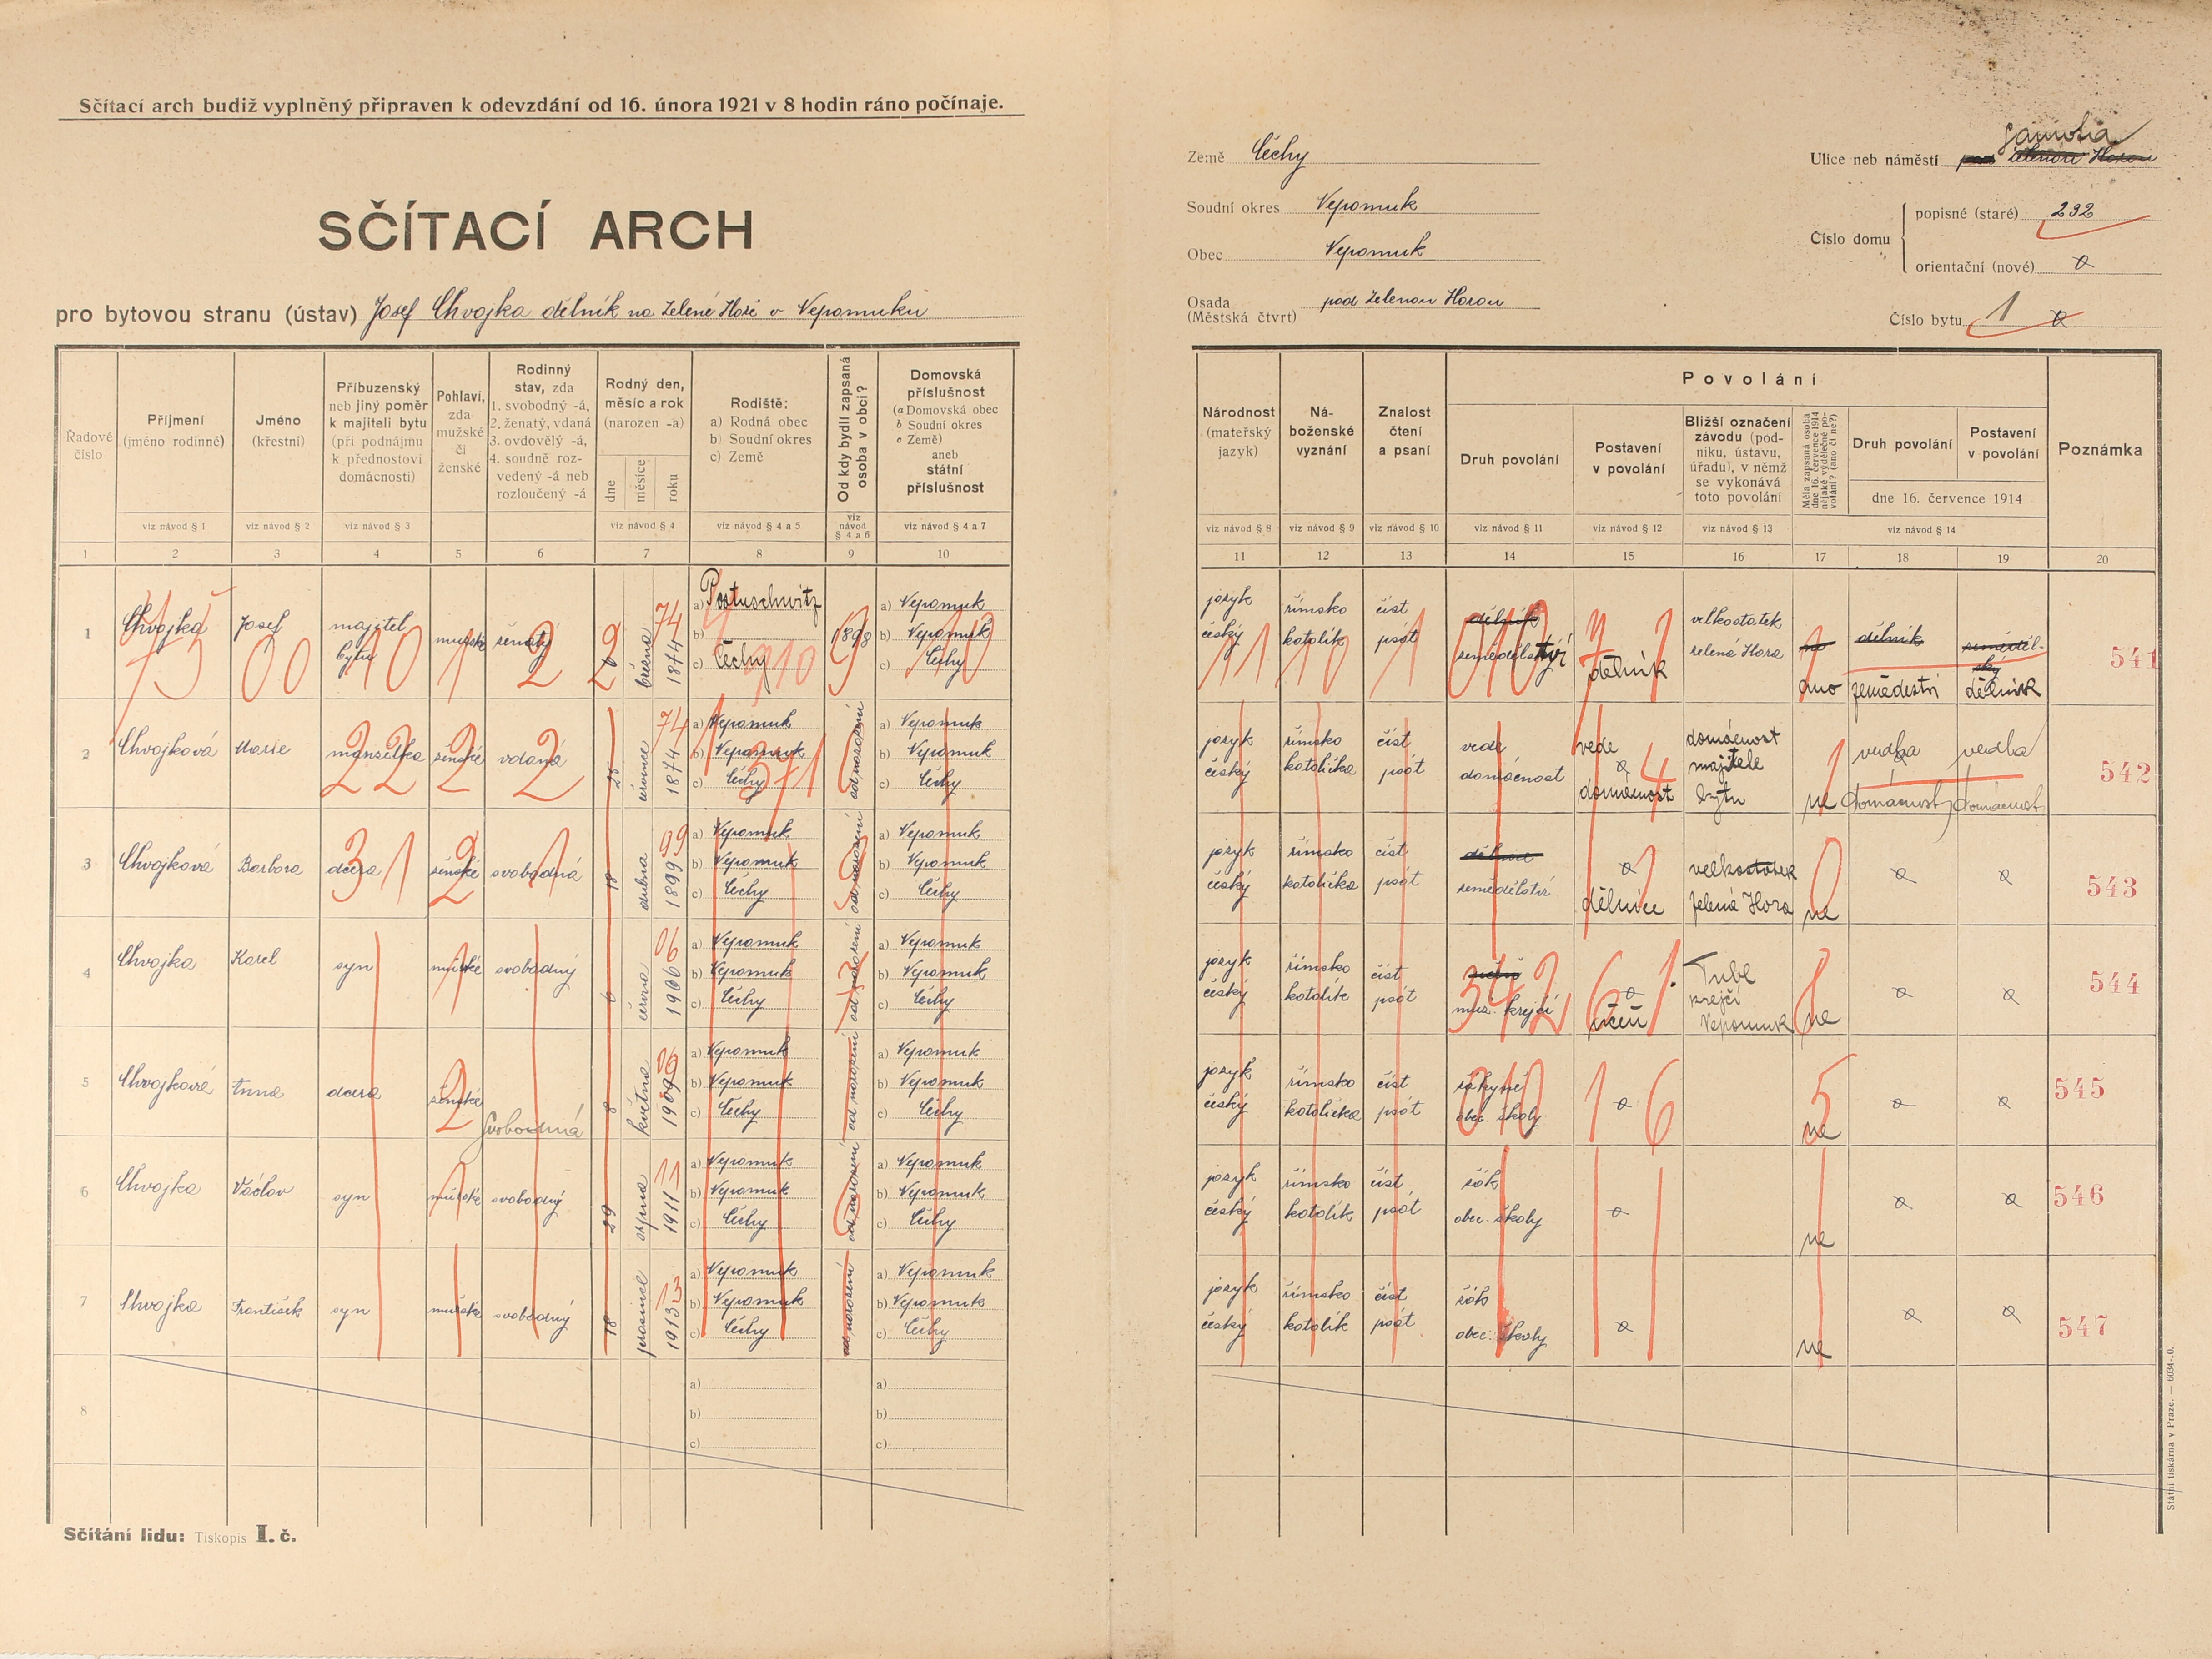 Sčítací arch budiž vyplněný připraven k odevzdání od 16. února 1921 v 8 hodin ráno počínaje.
SČÍTACÍ ARCH
pro bytovou stranu (ústav) Josef Chvojka dělník na Zelené Hoře v Nepomuku
Země Čechy
Soudní okres Nepomuk
Obec Nepomuk
Osada (Městská čtvrt) pod Zelenou Horou
Ulice neb náměstí Zelenou Horou
Číslo domu
popisné (staré) 232
orientační (nové) 0
Číslo bytu 1 0
Řadové číslo
Příjmení (jméno rodinné)
Jméno (křestní)
Příbuzenský neb jiný poměr k majiteli bytu (při podnájmu k přednostovi domácnosti)
Pohlaví, zda mužské či ženské
Rodinný stav, zda 1. svobodný -á, 2. ženatý, vdaná 3. ovdovělý -á, 4. soudně rozvedený -á neb rozloučený -á
Rodný den, měsíc a rok (narozen -a)
dne měsíce roku
Rodiště: a) Rodná obec b) Soudní okres c) Země
Od kdy bydlí zapsaná osoba v obci?
Domovská příslušnost (a Domovská obec b Soudní okres c Země) aneb státní příslušnost
viz návod § 1 viz návod § 2 viz návod § 3 viz návod § 4 viz návod § 4 a 5 viz návod § 4 a 6 viz návod § 4 a 7
1 2 3 4 5 6 7 8 9 10
Národnost (mateřský jazyk)
Náboženské vyznání
Znalost čtení a psaní
Povolání
Druh povolání
Postavení v povolání
Bližší označení závodu (podniku, ústavu, úřadu), v němž se vykonává toto povolání
Měla zapsaná osoba dne 16. července 1914 nějaké výdělečné povolání? (ano či ne?)
Druh povolání
Postavení v povolání
dne 16. července 1914
Poznámka
viz návod § 8 viz návod § 9 viz návod § 10 viz návod § 11 viz návod § 12 viz návod § 13 viz návod § 14
11 12 13 14 15 16 17 18 19 20
1 Chvojka Josef majitel bytu mužské ženatý 2 března 1874 74 a) Postuschwitz b) c) Čechy 1898 a) Nepomuk b) Nepomuk c) Čechy
jazyk český římsko katolík číst psát dělník zemědělství dělník velkostatek zelená Hora ano dělník zemědělský zemědestri dělník 541
2 Chvojková Marie manželka ženské vdaná 25 července 1874 74 a) Nepomuk b) Nepomuk c) Čechy od narození a) Nepomuk b) Nepomuk c) Čechy
jazyk český římsko katolička číst psát vede domácnost vede domácnost domácnost majitele bytu ne vedla domácnost vedla domácnost 542
3 Chvojková Barbora dcera ženské svobodná 18 dubna 1899 99 a) Nepomuk b) Nepomuk c) Čechy od narození a) Nepomuk b) Nepomuk c) Čechy
jazyk český římsko katolička číst psát dělnice zemědělství 0 dělnice velkostatek Zelená Hora ne 0 0 543
4 Chvojka Karel syn mužské svobodný 6 června 1906 06 a) Nepomuk b) Nepomuk c) Čechy od narození a) Nepomuk b) Nepomuk c) Čechy
jazyk český římsko katolík číst psát krejčí 0 učeň krejčí Nepomuk ne 0 0 544
5 Chvojková Anna dcera ženské Svobodná 8 května 1909 09 a) Nepomuk b) Nepomuk c) Čechy od narození a) Nepomuk b) Nepomuk c) Čechy
jazyk český římsko katolička číst psát žákyně obec. školy 0 ne 0 0 545
6 Chvojka Václav syn mužské svobodný 29 srpna 1911 11 a) Nepomuk b) Nepomuk c) Čechy od narození a) Nepomuk b) Nepomuk c) Čechy
jazyk český římsko katolík číst psát žák obec. školy 0 ne 0 0 546
7 Chvojka František syn mužské svobodný 18 prosince 1913 13 a) Nepomuk b) Nepomuk c) Čechy od narození a) Nepomuk b) Nepomuk c) Čechy
jazyk český římsko katolík číst psát žák obec. školy 0 ne 0 0 547
8 a) b) c) a) b) c)
Sčítání lidu: Tiskopis I. č.
Státní tiskárna v Praze. — 6034-.0.